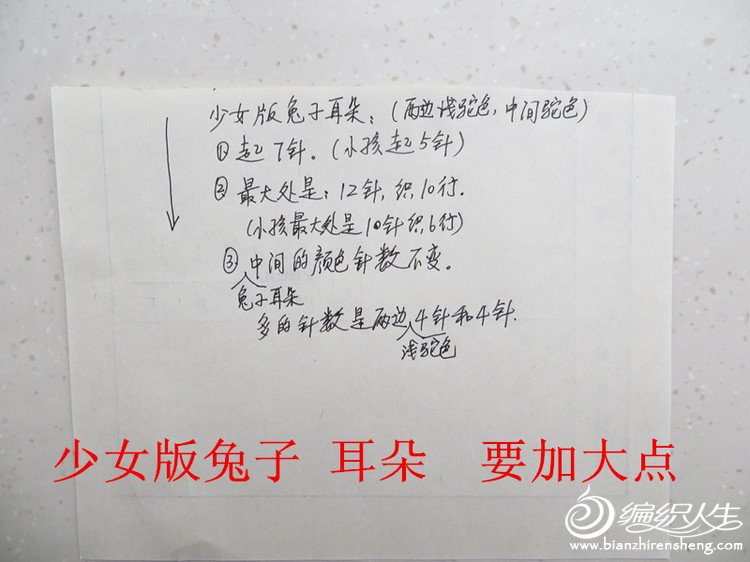 少女版兔子耳朵：（两边浅驼色，中间驼色）
①起7针。（小孩起5针）
②最大处是：12针，织10行.
（小孩最大处是10针织6行）
③中间的颜色针数不变。
兔子耳朵
多的针数是两边4针和4针.
浅驼色
少女版兔子 耳朵 要加大点
编织人生
www.bianzhirensheng.com